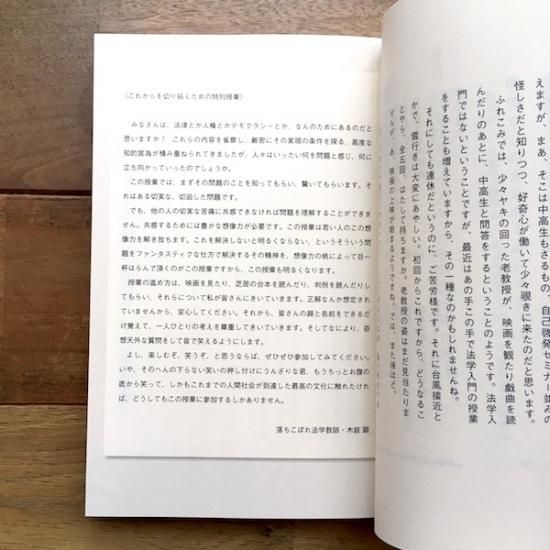 〈これからを切り拓くための特別授業〉
みなさんは、法律とか人権とかデモクラシーとか、なんのためにあるのだと
思いますか？ これらの内容を省察し、厳密にその実現の条件を探る、高度な
知的営為が積み重ねられてきましたが、人々はいったい何を問題と感じ、何に
立ち向かっていったのでしょうか。
この授業では、まずその問題のことを知ってもらい、驚いてもらいます。そ
れはある切実な、切迫した問題です。
でも、他の人の切実な苦痛に共感できなければ問題を理解することができま
せん。共感するためには豊かな想像力が必要です。この授業は若い人のこの想
像力を解き放ちます。これを解決しないと明るくならない、というそういう問
題をファンタスティックな仕方で解決するその精神を、想像力の帆によって目一
杯はらんで頂くのがこの授業ですから、この授業も明るくなります。
授業の進め方は、映画を見たり、芝居の台本を読んだり、判例を読んだりし
てもらい、それらについて私が皆さんにきいていきます。正解なんか想定され
ていませんから、安心してください。それから、皆さんの顔と名前をできるだ
け覚えて、一人ひとりの考えを尊重していきます。そしてなにより、奇
想天外な質問をして皆で笑えるようにします。
よし、楽しむぞ、笑うぞ、と思うならば、ぜひぜひ参加してみてください。
いや、そのへんの下らない笑いの押し付けにうんざりな君、もうちっとお腹の
底から笑って、しかもこれまでの人間社会が到達した最高の文化に触れたけれ
ば、どうしてもこの授業に参加するしかありません。
落ちこぼれ法学教師・木庭 顕
えますが、まあ、そこは中高生もさるもの、自己啓発セミナー並みの
怪しさだと知りつつ、好奇心が働いて少々覗きに来たのだと思います。
ふれこみでは、少々ヤキの回った老教授が、映画を観たり戯曲を読
んだりのあとに、中高生と問答をするということのようです。法学入
門ではないということですが、最近はあの手この手で法学入門の授業
をすることも増えていますから、その一種なのかもしれませんね。
それにしても連休だというのに、ご苦労様です。それに台風接近と
かで、雲行きは大変にあやしい。初回からこれですから、どうなるこ
とやら、全五回、はたして持ちますか。老教授の姿はまだ見当たりま
せんが、あ、映画の上映が始まるようですね。では、また後ほど。